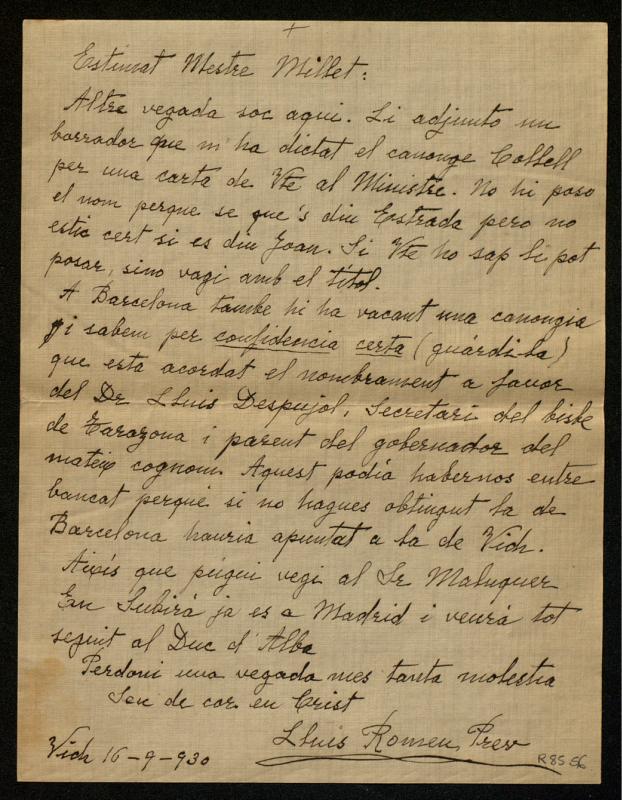 +
Estimat Mestre Millet:
Altre vegada soc aqui. Li adjunto un
borrador que m'ha dictat el canonge Collell
per una carta de Vte al Ministre. No hi poso
el nom perque se que's diu Estrada pero no
estic cert si es diu Joan. Si Vte ho sap li pot
posar, sino vagi amb el títol.
A Barcelona tambe hi ha vacant una canongia
i sabem per confidencia certa (guárdi-la)
que esta acordat el nombrament a favor
del Dr Lluis Despujol, Secretari del bisbe
de Tarazona i parent del gobernador del
mateix cognom. Aquest podía habernos entre
bancat perque si no hagues obtingut la de
Barcelona hauria apuntat a la de Vich.
Aixís que pugui vegi al Sr Maluquer
En Subirá ja es a Madrid i veurá tot
seguit al Duc d'Alba
Perdoni una vegada mes tanta molestia
Seu de cor en Crist
Lluis Romeu, Prev
Vich 16-9-930
R85 56